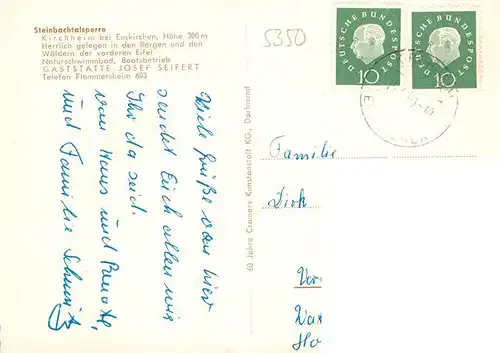 Steinbachtalsperre
Kirchheim bei Euskirchen, Höhe 300 m
Herrlich gelegen in den Bergen und den
Wäldern der vorderen Eifel
Naturschwimmbad, Bootsbetrieb
GASTSTÄTTE JOSEF SEIFERT
Telefon Flammersheim 603
5350
DEUTSCHE BUNDESPOST
10
DEUTSCHE BUNDESPOST
10
Viele Grüße von hier
sendet Euch allen wie
Ihr da seid.
von Haus und
und Familie Schmitz
60 Jahre Cramers Kunstanstalt KG., Dortmund
Familie
Dirk